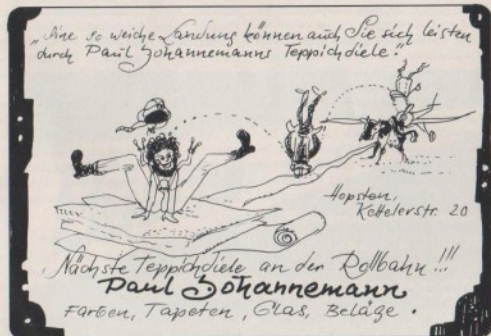 „Eine so weiche Landung können auch Sie sich leisten
durch Paul Johannemanns Teppichdiele."
Hopsten,
Kettelerstr. 20
Nächste Teppichdiele an der Rollbahn!!!
Paul Johannemann
Farben, Tapeten, Glas, Beläge.